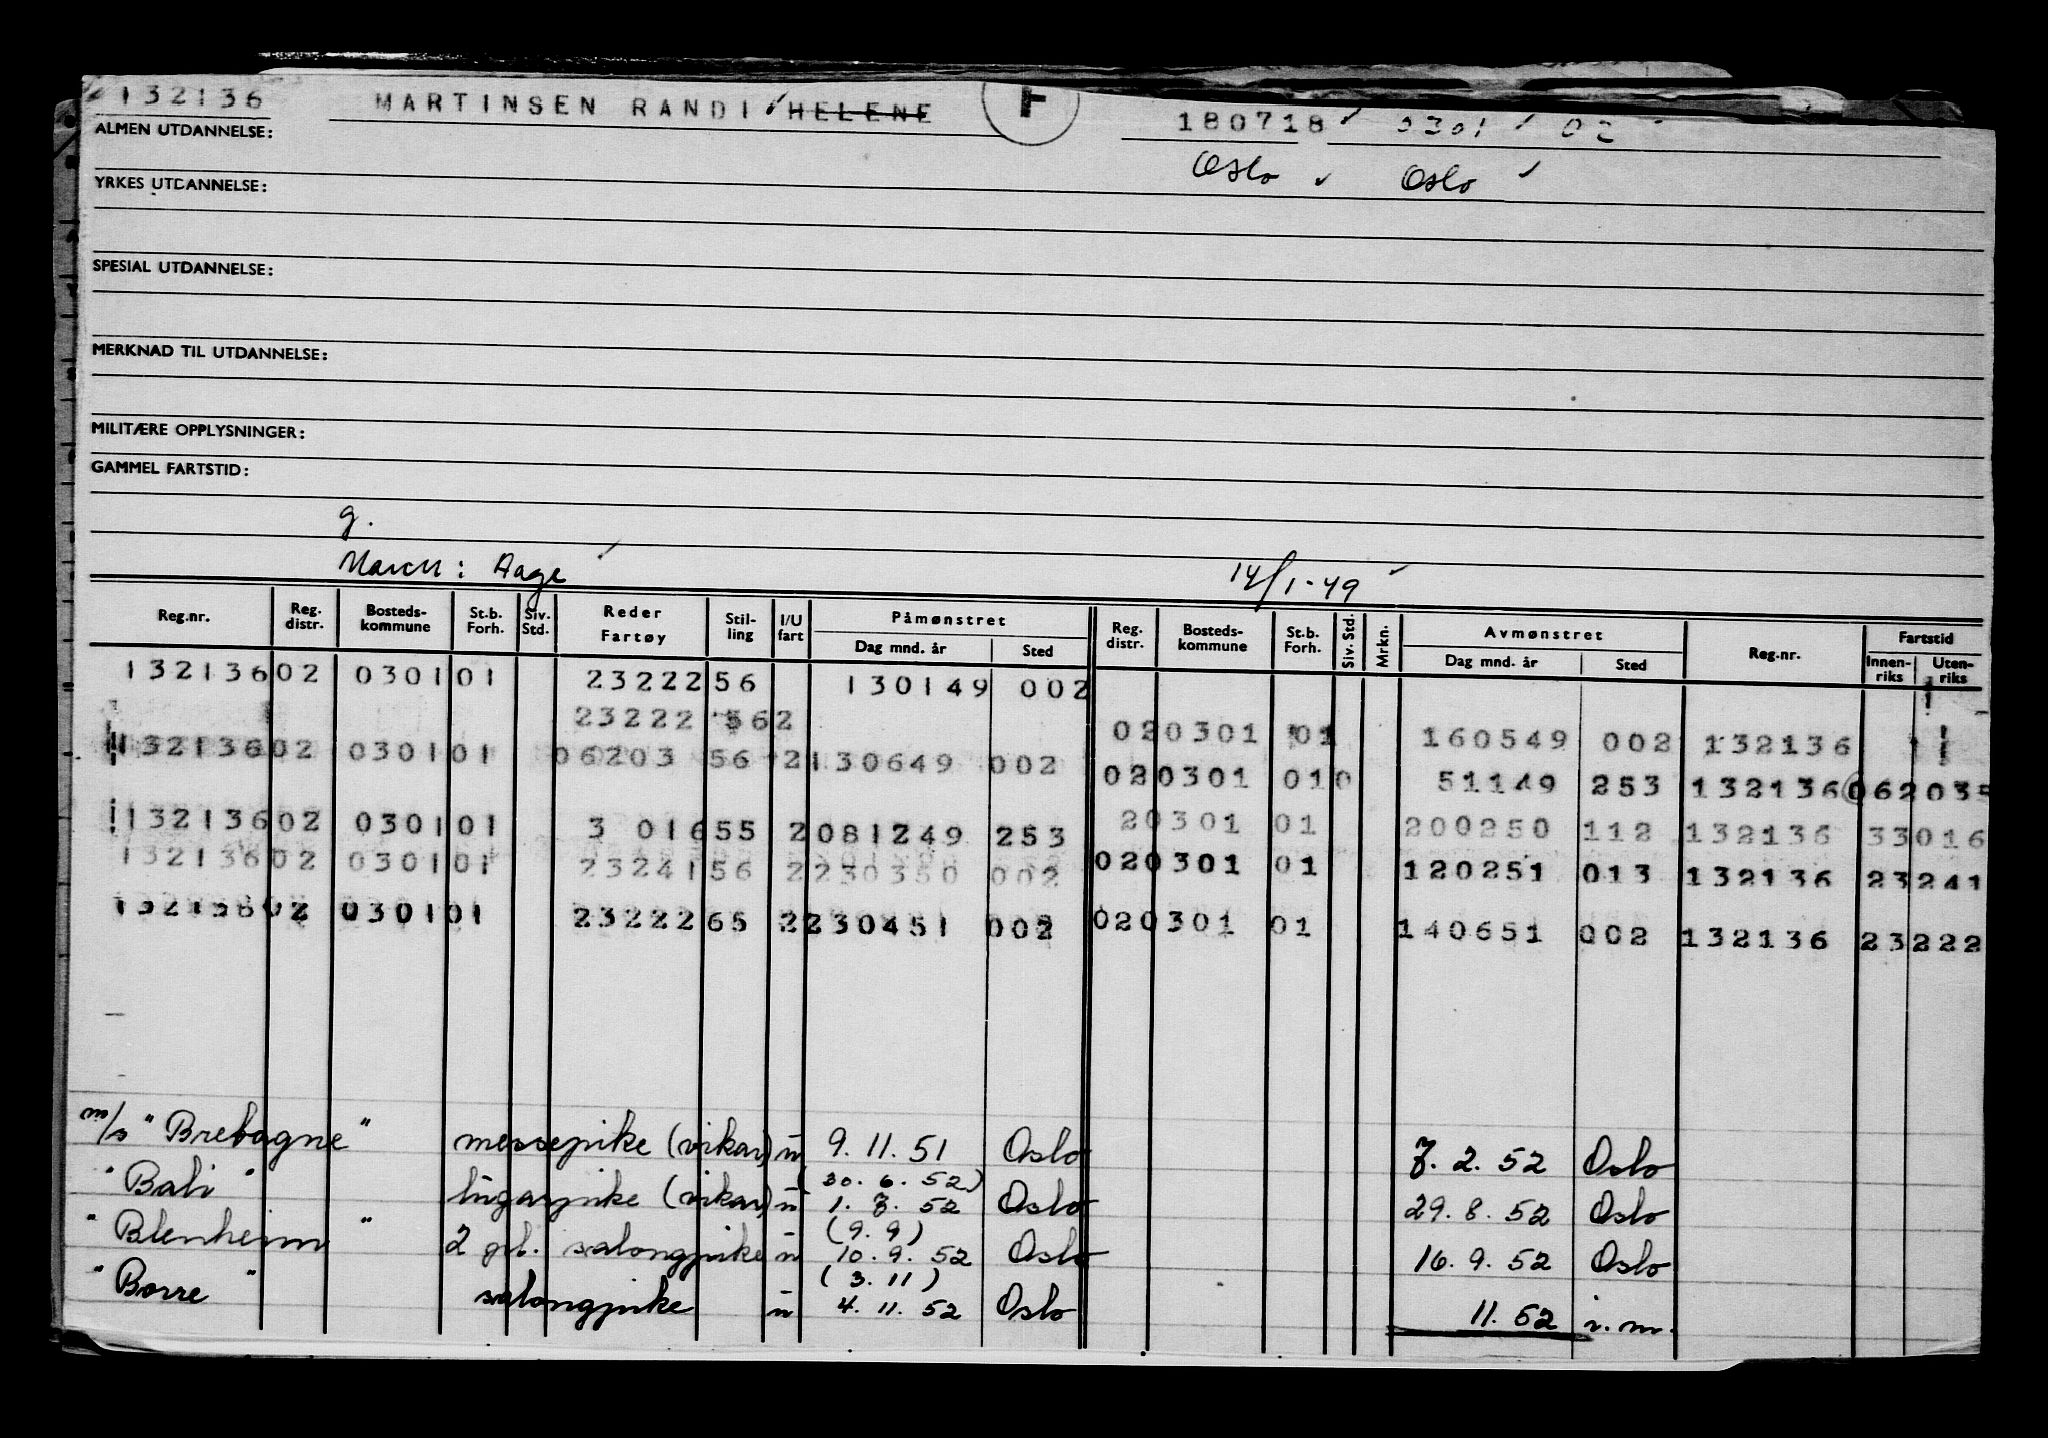 132136 MARTINSEN RANDI HELENE F 180718 0301 02
ALMEN UTDANNELSE:
Oslo Oslo
YRKES UTDANNELSE:
SPESIAL UTDANNELSE:
MERKNAD TIL UTDANNELSE:
MILITÆRE OPPLYSNINGER:
GAMMEL FARTSTID:
g.
: Aage 14/1-49
Reg.nr. Reg. distr. Bosteds-kommune St.b. Forh. Siv. Std. Reder Fartøy Stil-ling I/U fart Påmønstret Dag mnd. år Sted Reg. distr. Bosteds-kommune St.b. Forh. Siv. Std. Mrkn. Avmønstret Dag mnd. år Sted Reg.nr. Fartstid Innen-riks Uten-riks
132136 02 0301 01 23222 56 130149 002
23222 56 2 02 0301 01 160549 002 132136
132136 02 0301 01 06203 56 2 130649 002 02 0301 01 0 51149 253 132136 062035
132136 02 0301 01 3 016 55 2 081249 253 2 0301 01 200250 112 132136 33016
132136 02 0301 01 23241 56 2 230350 002 02 0301 01 120251 013 132136 23241
132136 02 0301 01 23222 65 2 230451 002 02 0301 01 140651 002 132136 23222
m/s "Bretagne" messepike (vikar) u 9. 11. 51 Oslo 7. 2. 52 Oslo
(30. 6. 52)
"Bali" lugarpike (vikar) u 1. 7. 52 Oslo 29. 8. 52 Oslo
(9. 9)
"Blenheim" 2 grl. salongpike u 10. 9. 52 Oslo 16. 9. 52 Oslo
(3. 11)
"Borre" salongpike u 4. 11. 52 Oslo 11. 52 i. m.